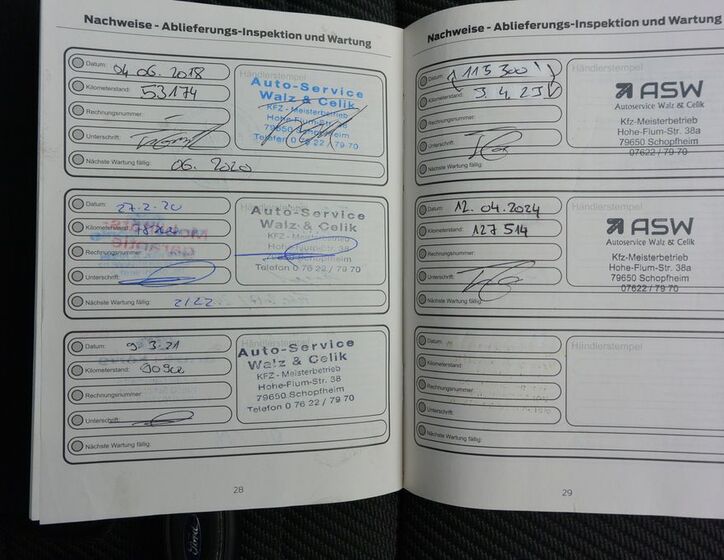 Nachweise - Ablieferungs-Inspektion und Wartung
Datum: 04.06.2018
Kilometerstand: 53174
Rechnungsnummer:
Unterschrift:
Nächste Wartung fällig: 06.2020
Händlerstempel
Auto-Service
Walz & Celik
KFZ - Meisterbetrieb
Hohe-Flum-Str. 38
79650 Schopfheim
Telefon 0 76 22 / 79 70
Datum: 27.2.20
Kilometerstand:
Rechnungsnummer:
Unterschrift:
Nächste Wartung fällig: 2/22
Händlerstempel
Auto-Service
Walz & Celik
KFZ - Meisterbetrieb
Hohe-Flum-Str. 38
79650 Schopfheim
Telefon 0 76 22 / 79 70
Datum: 9.3.21
Kilometerstand:
Rechnungsnummer:
Unterschrift:
Nächste Wartung fällig:
Händlerstempel
Auto-Service
Walz & Celik
KFZ - Meisterbetrieb
Hohe-Flum-Str. 38
79650 Schopfheim
Telefon 0 76 22 / 79 70
28
Nachweise - Ablieferungs-Inspektion und Wartung
Datum: 115300
Kilometerstand: 3.4.23
Rechnungsnummer:
Unterschrift:
Nächste Wartung fällig:
Händlerstempel
ASW
Autoservice Walz & Celik
Kfz-Meisterbetrieb
Hohe-Flum-Str. 38a
79650 Schopfheim
07622 / 79 70
Datum: 12.04.2024
Kilometerstand: 127514
Rechnungsnummer:
Unterschrift:
Nächste Wartung fällig:
Händlerstempel
ASW
Autoservice Walz & Celik
Kfz-Meisterbetrieb
Hohe-Flum-Str. 38a
79650 Schopfheim
07622 / 79 70
Datum:
Kilometerstand:
Rechnungsnummer:
Unterschrift:
Nächste Wartung fällig:
Händlerstempel
29
Ford